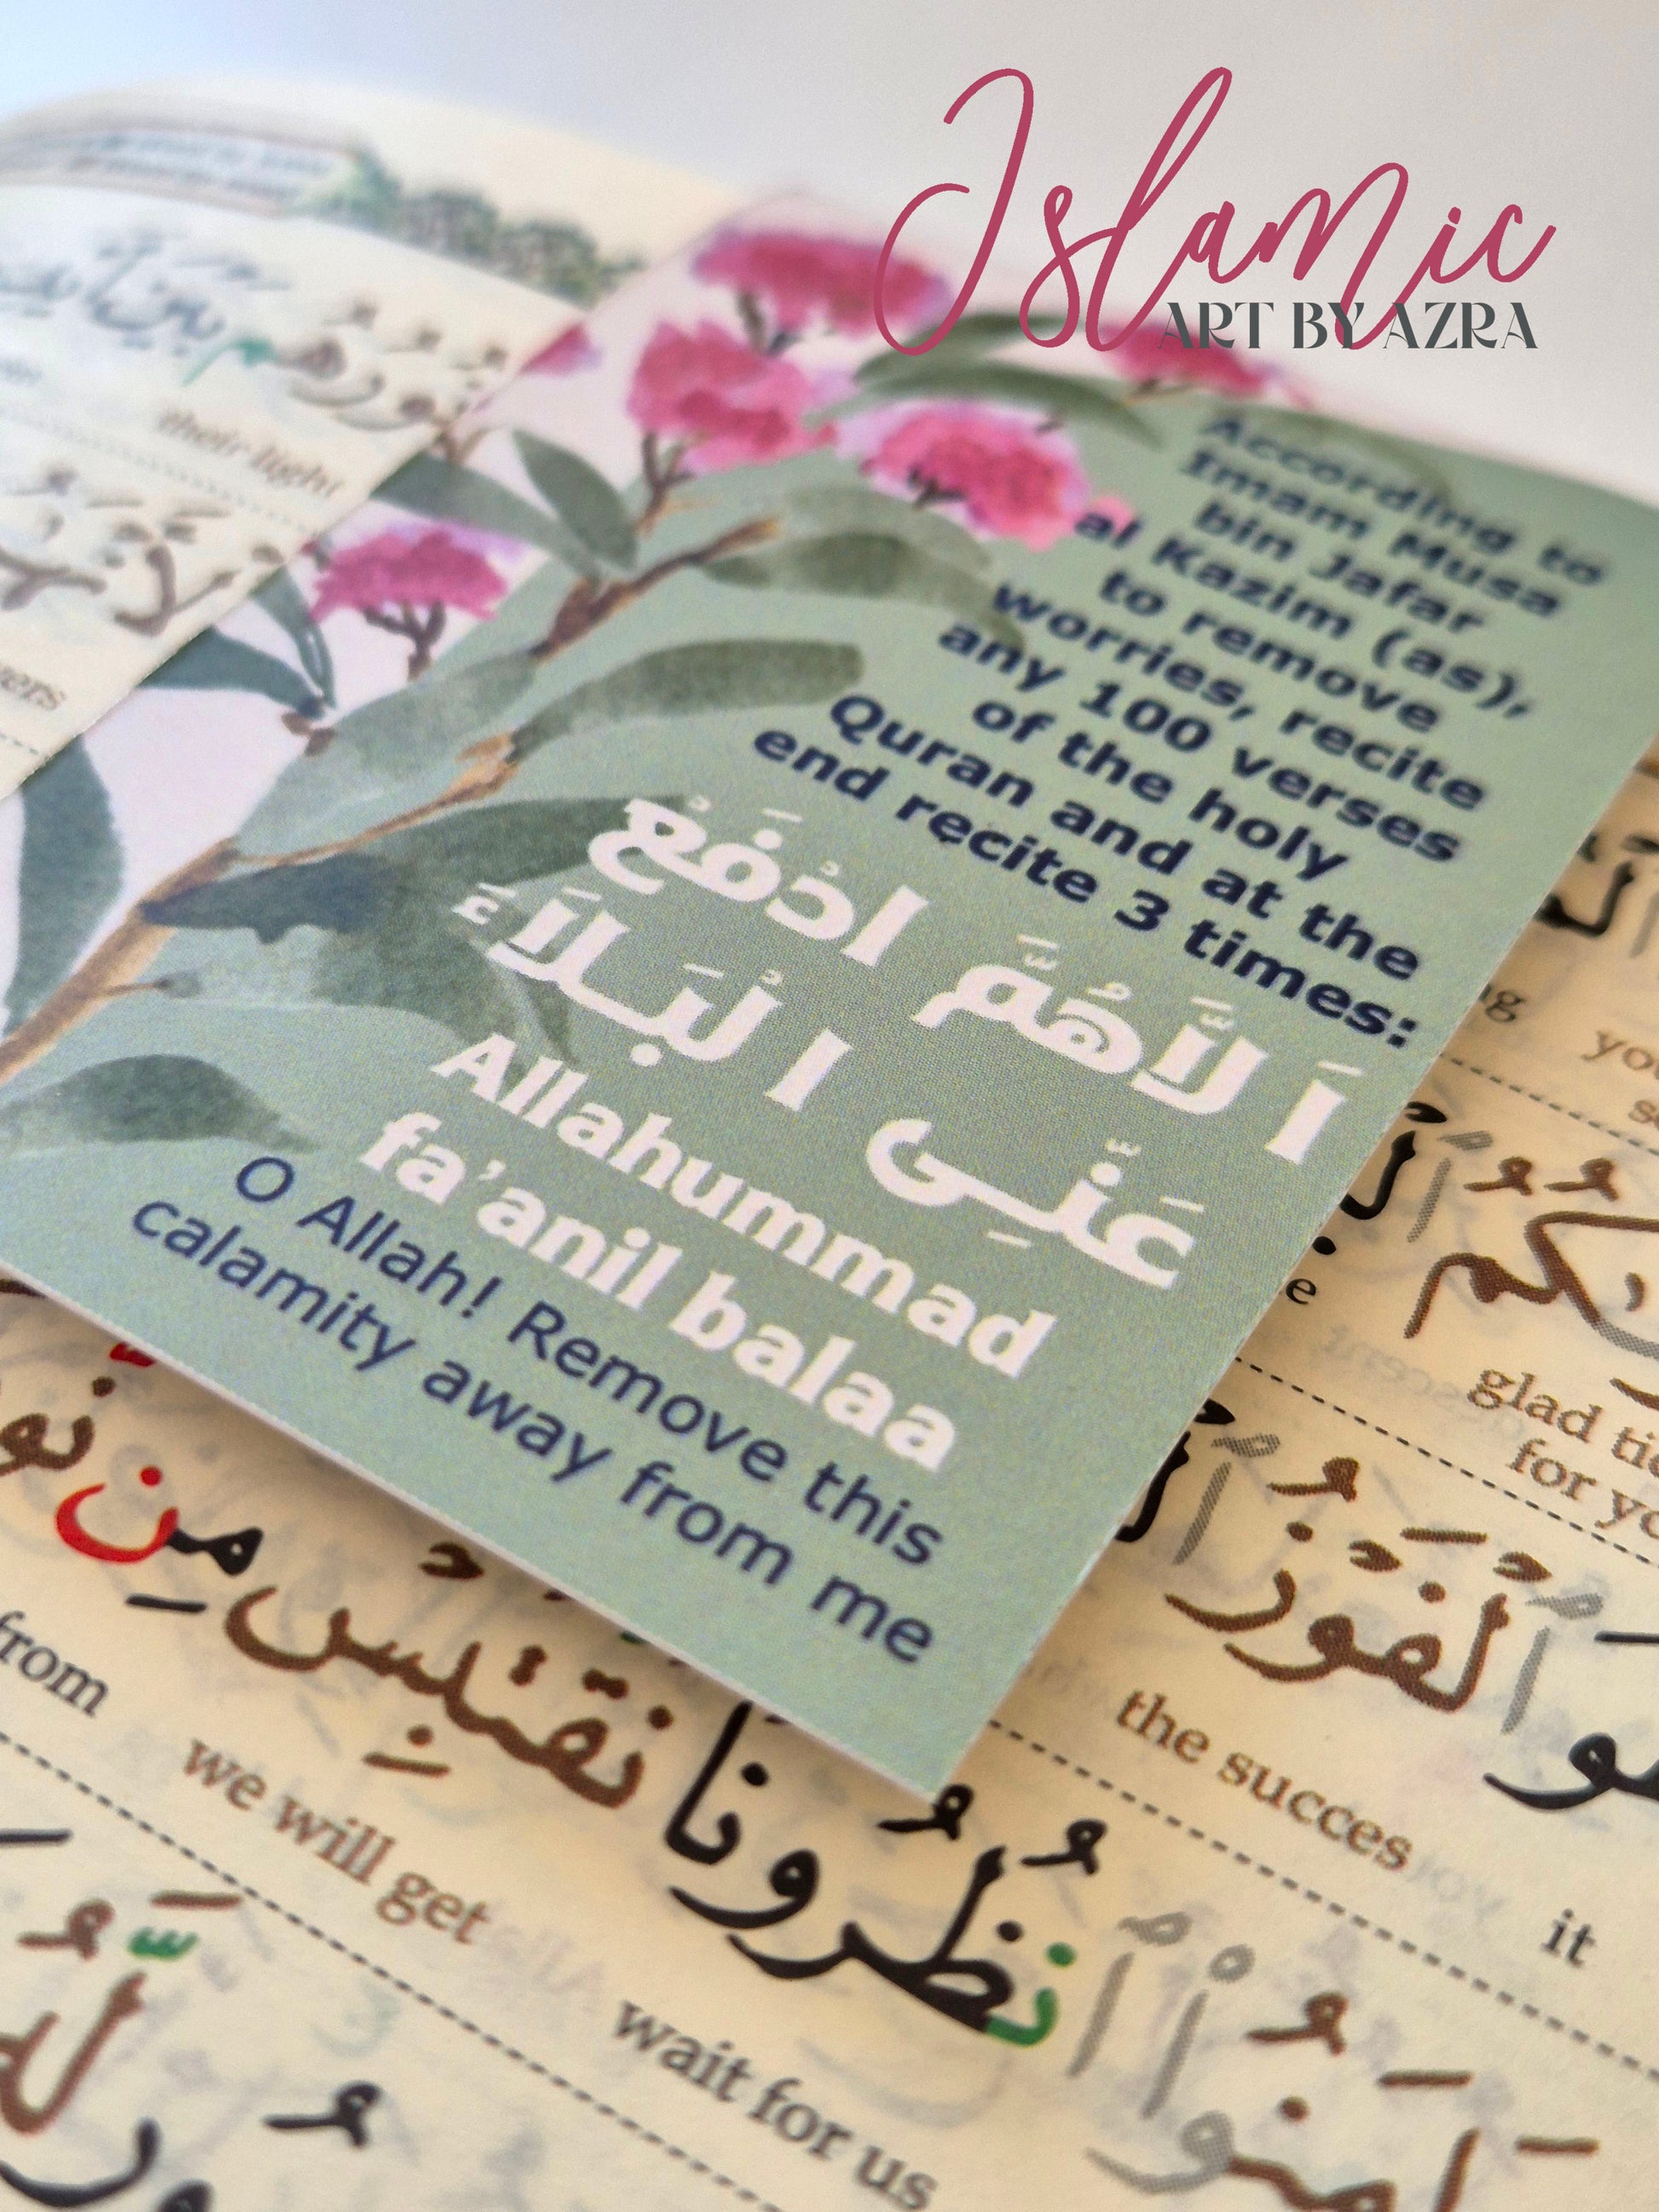 Islamic
ART BY AZRA
According to
Imam Musa
bin Jafar
al Kazim (as),
to remove
worries, recite
any 100 verses
of the holy
Quran and at the
end recite 3 times:
اَ لَّاهُمَّ ادْفَعْ
عَنِّى ا لْبَلَاَءَ
Allahummad
fa'anil balaa
O Allah! Remove this
calamity away from me
their light
you
glad
for
ٱلْفَوْزُ
the success
it
مِن
نَقْتَبِسْ
from
we will get
ٱنظُرُونَا
wait for us